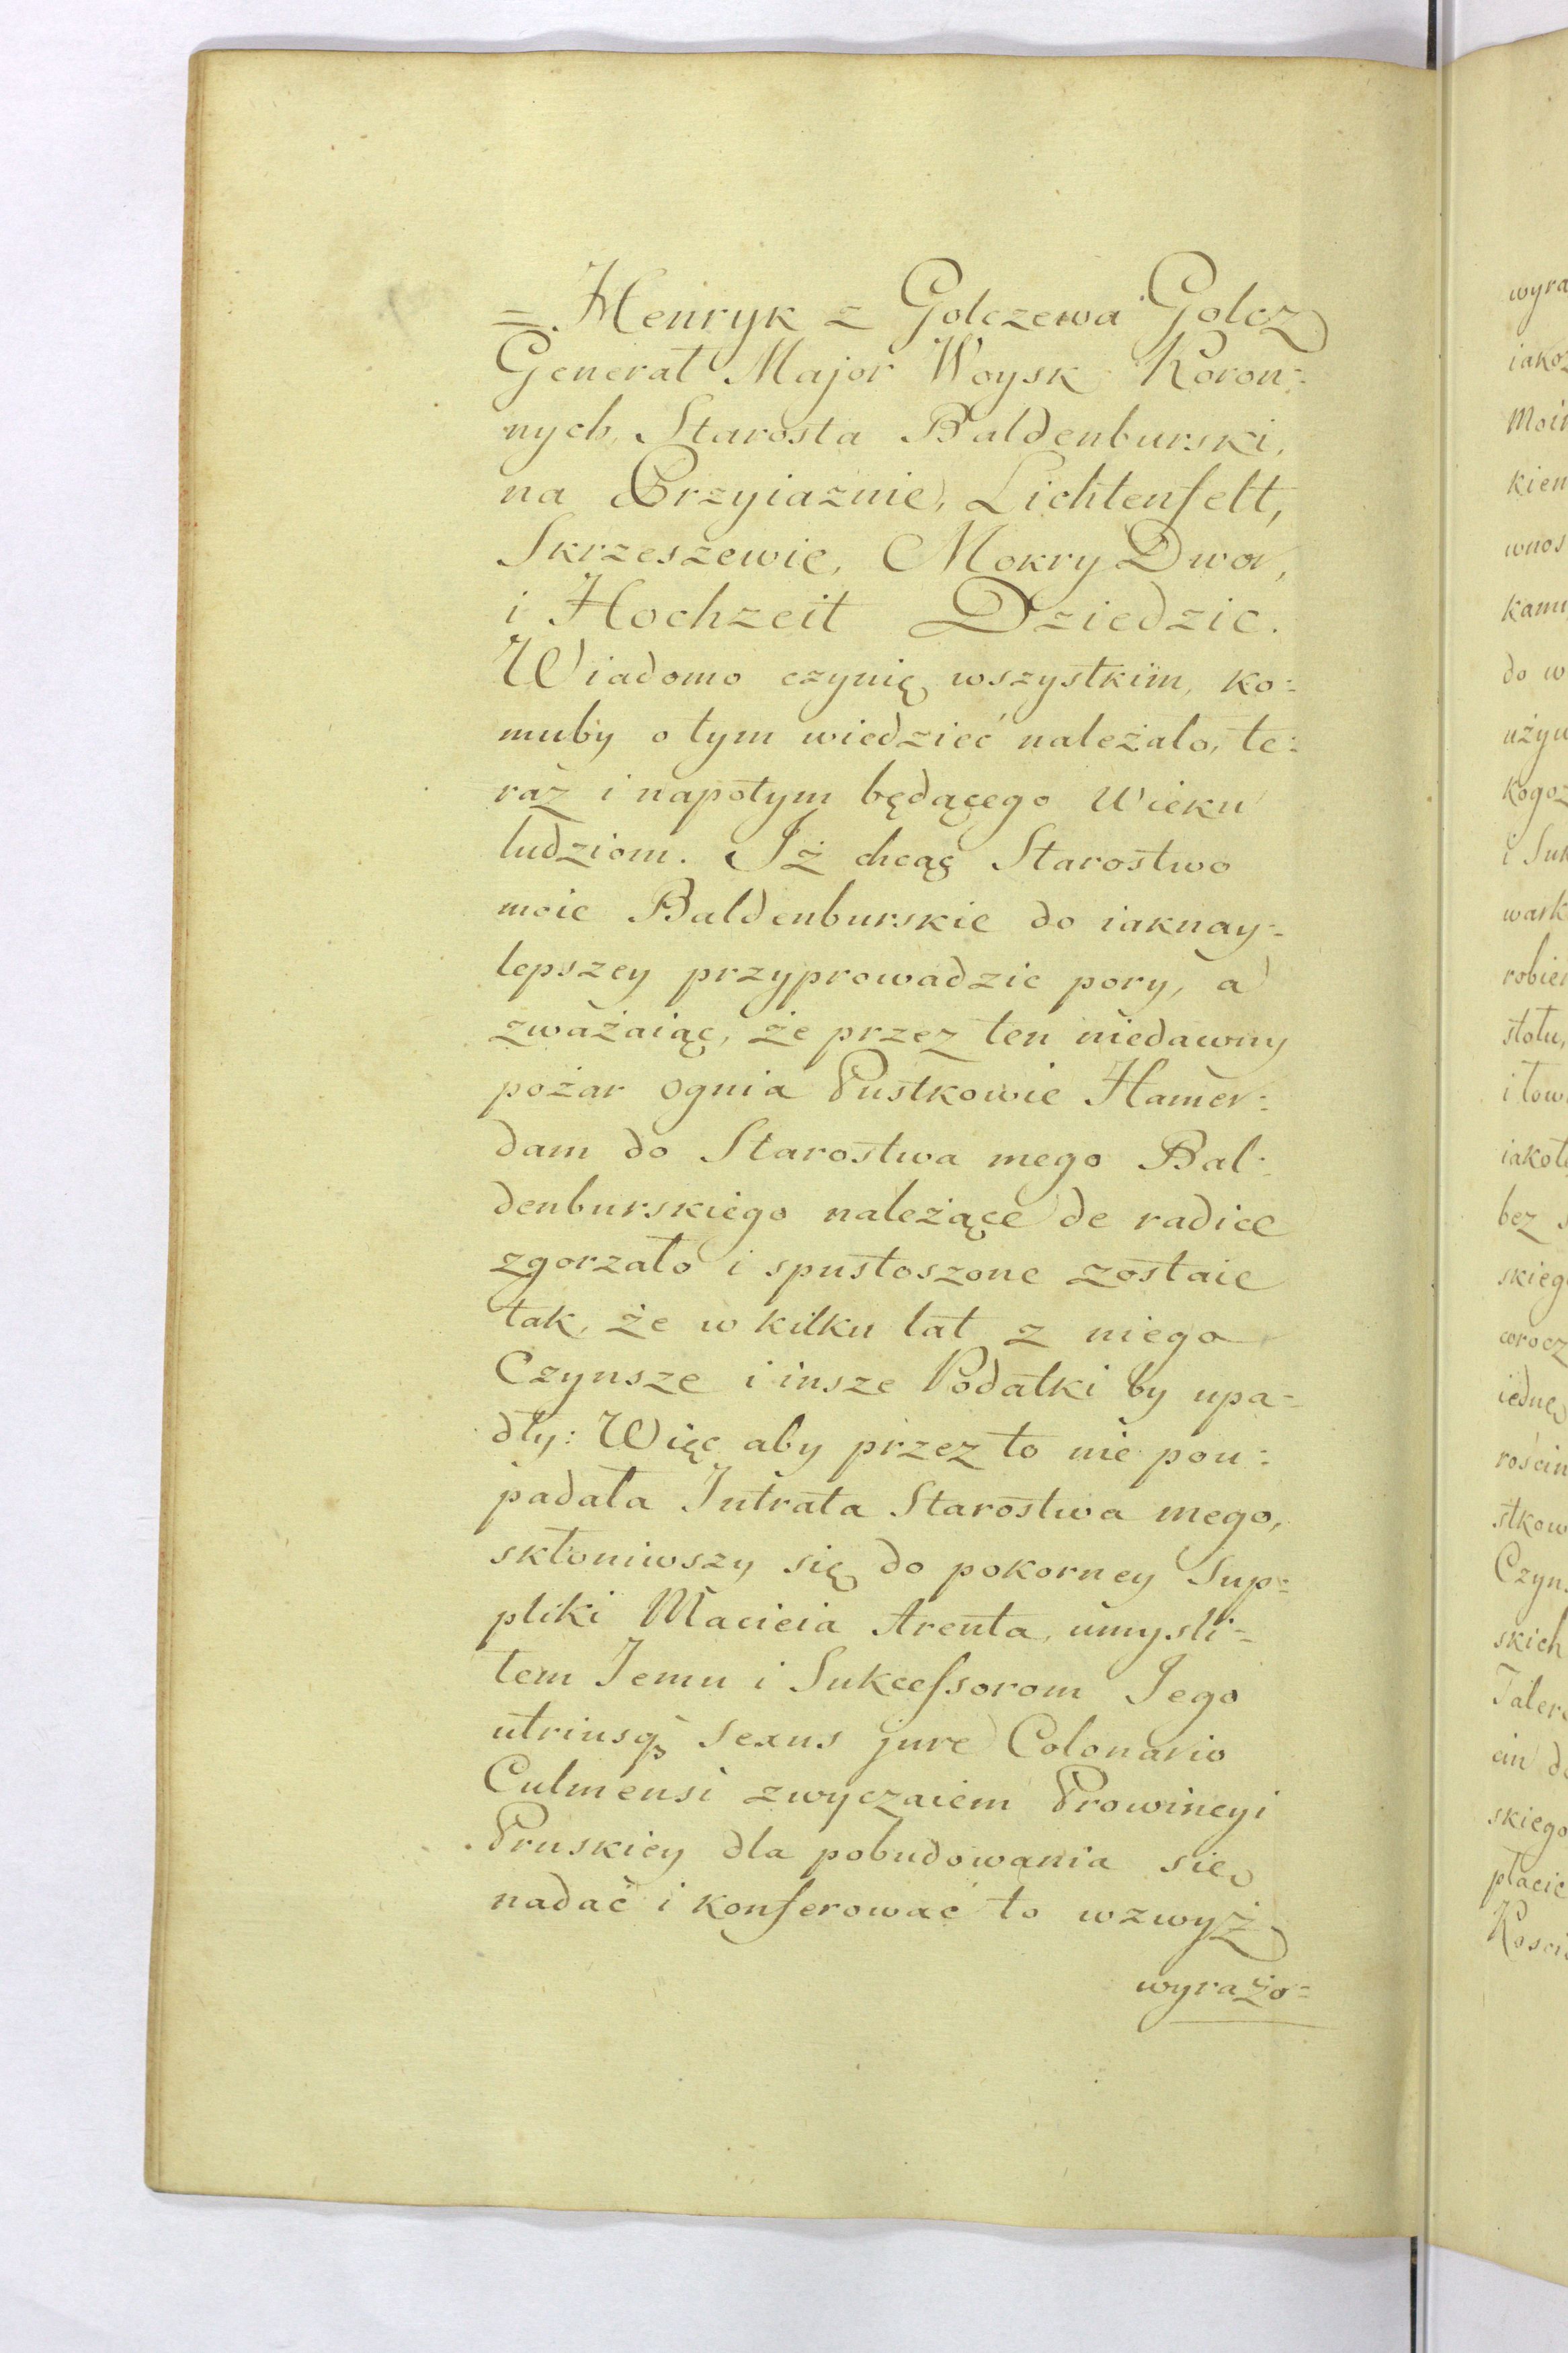 = Henryk z Golczewa Golcz
Generał Major Woysk Koron=
nych, Starosta Baldenburski,
na Przyiaznie, Lichtenfelt,
Skrzeszewie, Mokry Dwor,
i Hochzeit Dziedzic.
Wiadomo czynię wszystkim, ko=
muby o tym wiedzieć należało, te=
raz i napotym będącego Wieku
ludziom. Iż chcąc Starostwo
moie Baldenburskie do iaknay=
lepszey przyprowadzic pory, a
zważaiąc, że przez ten niedawny
pożar ognia Pustkowie Hamer=
dam do Starostwa mego Bal=
denburskiego należące de radice
zgorzało i spustoszone zostaie
tak, że w kilku lat z niego
Czynsze i insze Podatki by upa=
dły: Więc aby przez to nie pou=
padała Intrata Starostwa mego,
skłoniwszy się do pokorney Sup=
pliki Macieia Arenta, umysli=
łem Jemu i Sukcessorom Jego
utriusq; Sexus jure Colonario
Culmensi zwyczaiem Prowincyi
Pruskiey dla pobudowania się
nadać i konferować to wzwyż
wyrażo=
wyra
iakoż
Moim
kiem
wnos
kamy
do w
używ
kogoz
i Suk
wark
robien
stołu,
i tow
iakote
bez s
skieg
corocz
iedne
rościn
stkow
Czyn
skich
Taler
cin do
skiego
płacić
Kosció